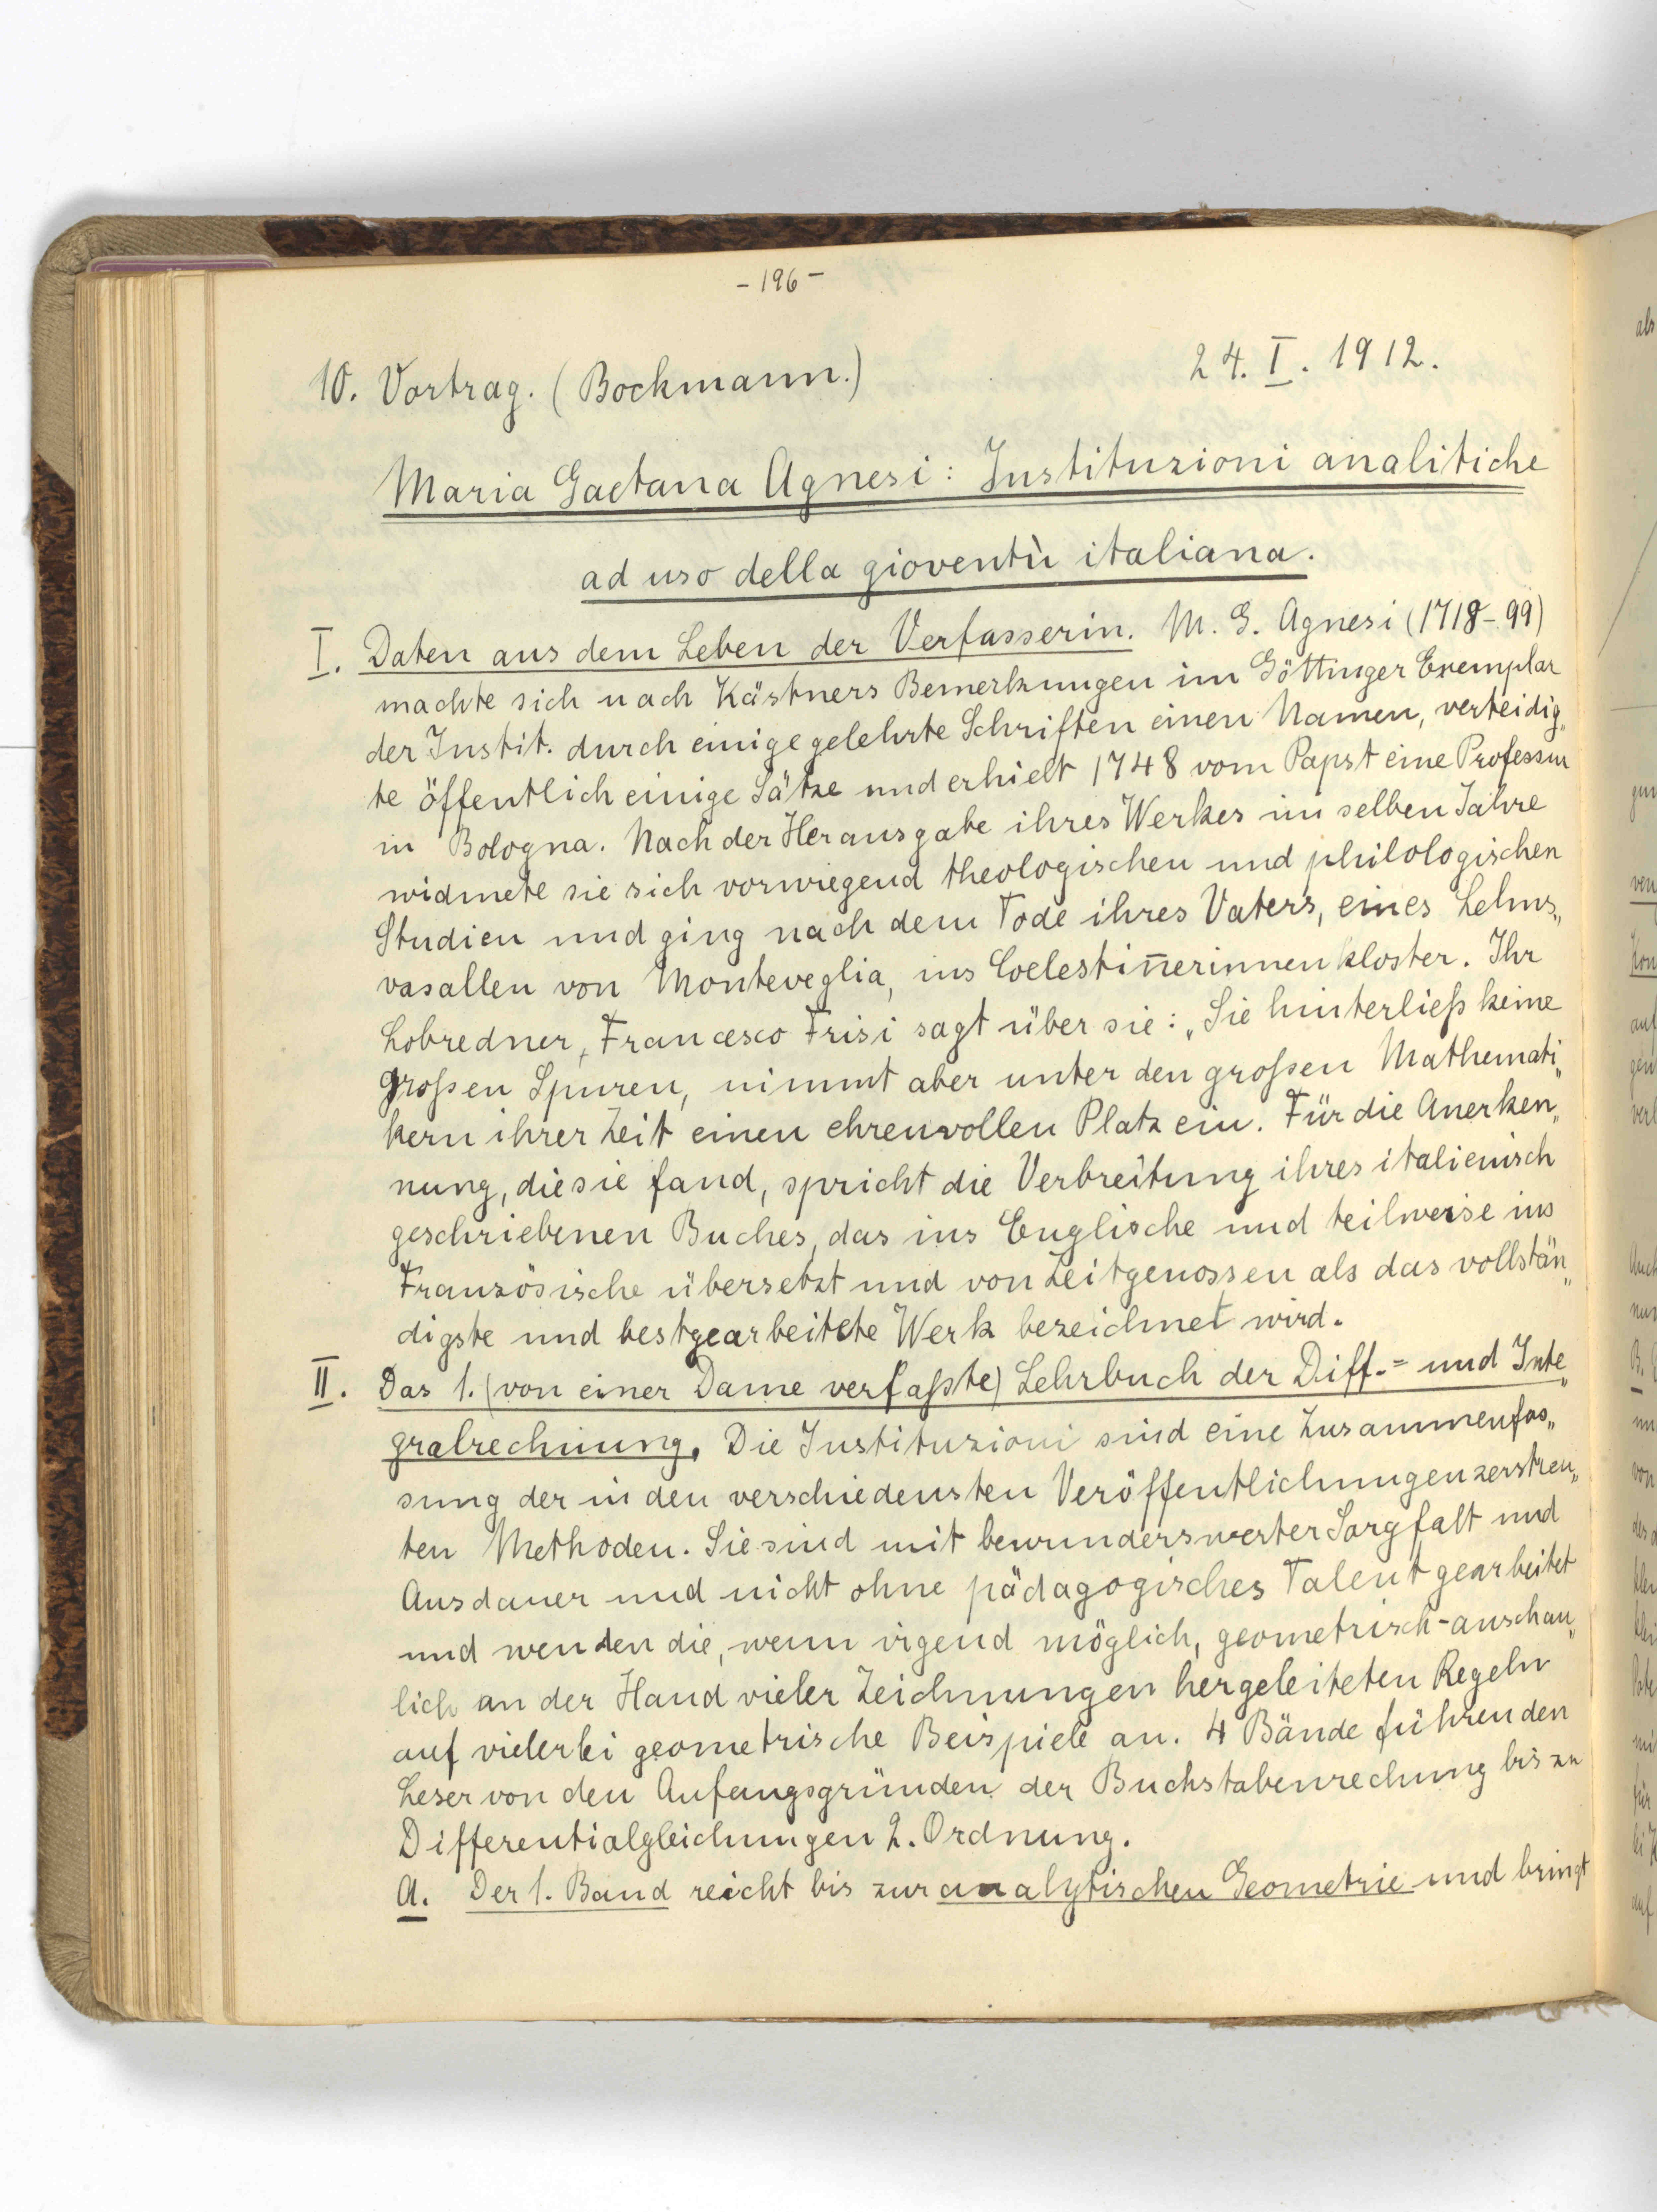 - 196 -
10. Vortrag. (Bockmann.) 24. I. 1912.
Maria Gaetana Agnesi: Instituzioni analitiche
ad uso della gioventù italiana.
I. Daten aus dem Leben der Verfasserin. M. G. Agnesi (1718-99)
machte sich nach Kästners Bemerkungen im Göttinger Exemplar
der Instit. durch einige gelehrte Schriften einen Namen, verteidig„
te öffentlich einige Sätze und erhielt 1748 vom Papst eine Professur
in Bologna. Nach der Herausgabe ihres Werkes im selben Jahre
widmete sie sich vorwiegend theologischen und philologischen
Studien und ging nach dem Tode ihres Vaters, eines Lehns„
vasallen von Monteveglia, ins Coelestin̅erinnenkloster. Ihr
Lobredner, Francesco Frisi sagt über sie: „Sie hinterließ keine
großen Spuren, nimmt aber unter den großen Mathemati„
kern ihrer Zeit einen ehrenvollen Platz ein. Für die Anerken„
nung, die sie fand, spricht die Verbreitung ihres italienisch
geschriebenen Buches, das ins Englische und teilweise ins
Französische übersetzt und von Zeitgenossen als das vollstän„
digste und bestgearbeitete Werk bezeichnet wird.
II. Das 1. (von einer Dame verfaßte) Lehrbuch der Diff.= und Inte„
gralrechnung. Die Instituzioni sind eine Zusammenfas„
sung der in den verschiedensten Veröffentlichungen zerstreu„
ten Methoden. Sie sind mit bewunderswerter Sorgfalt und
Ausdauer und nicht ohne pädagogisches Talent gearbeitet
und wenden die, wenn irgend möglich, geometrisch-anschau„
lich an der Hand vieler Zeichnungen hergeleiteten Regeln
auf vielerlei geometrische Beispiele an. 4 Bände führen den
Leser von den Anfangsgründen der Buchstabenrechnung bis zu
Differentialgleichungen 2. Ordnung.
A. Der 1. Band reicht bis zur analytischen Geometrie und bringt